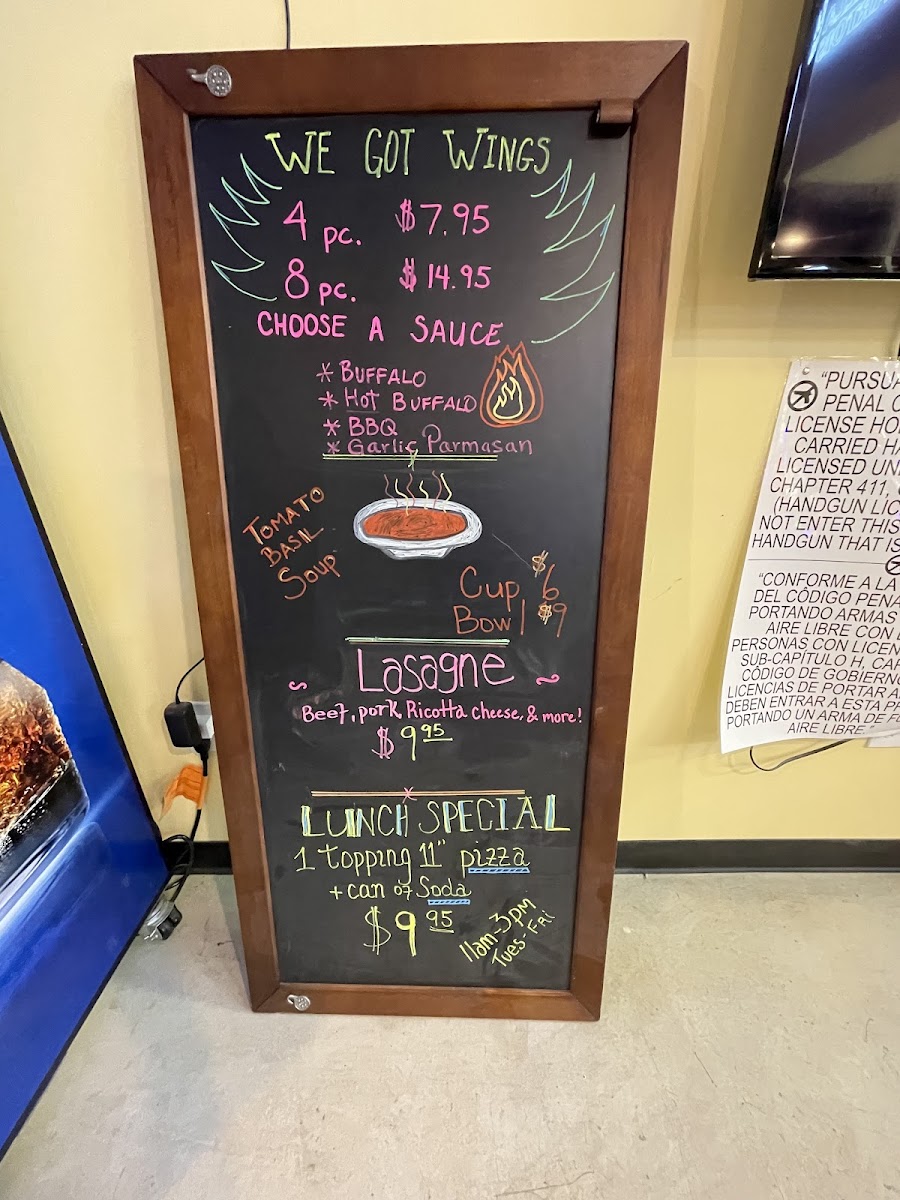 WE GOT WINGS
4 pc. $7.95
8 pc. $14.95
CHOOSE A SAUCE
* BUFFALO
* HOT BUFFALO
* BBQ
* Garlic Parmasan
TOMATO
BASIL
SOUP
Cup $6
Bowl $9
Lasagne
Beef, pork, Ricotta cheese, & more!
$9.95
LUNCH SPECIAL
1 topping 11" pizza
+ can of Soda
$9.95
11am-3pm
Tues-Fri
"PURSUA
PENAL C
LICENSE HO
CARRIED HA
LICENSED UN
CHAPTER 411,
(HANDGUN LIC
NOT ENTER THIS
HANDGUN THAT IS
"CONFORME A LA
DEL CÓDIGO PENA
PORTANDO ARMAS
AIRE LIBRE CON L
PERSONAS CON LICEN
SUB-CAPITULO H, CAP
CÓDIGO DE GOBIERNO
LICENCIAS DE PORTAR A
DEBEN ENTRAR A ESTA PR
PORTANDO UN ARMA DE FU
AIRE LIBRE."